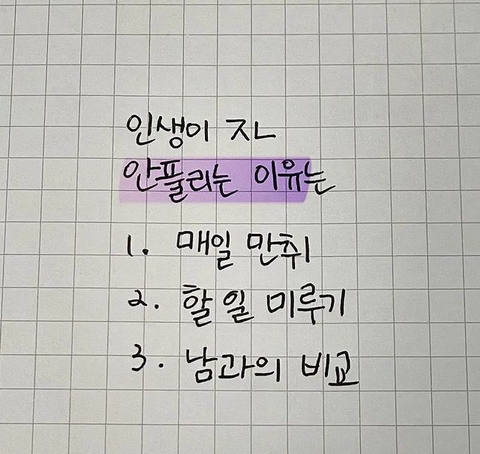 인생이 자ㄴ
안풀리는 이유는
1. 매일 만취
2. 할 일 미루기
3. 남과의 비교